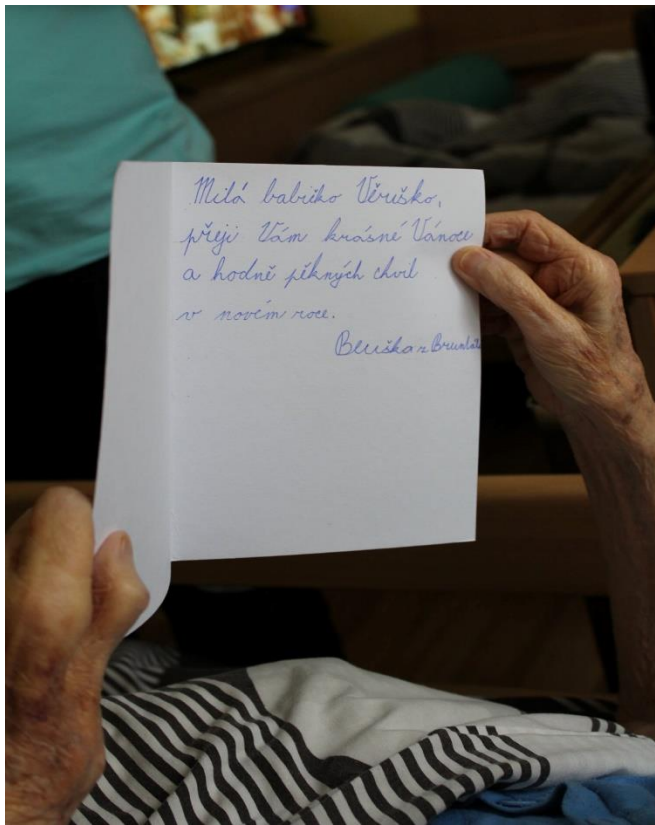 Milá babičko Věruško,
přeji Vám krásné Vánoce
a hodně pěkných chvil
v novém roce.
Beruška z